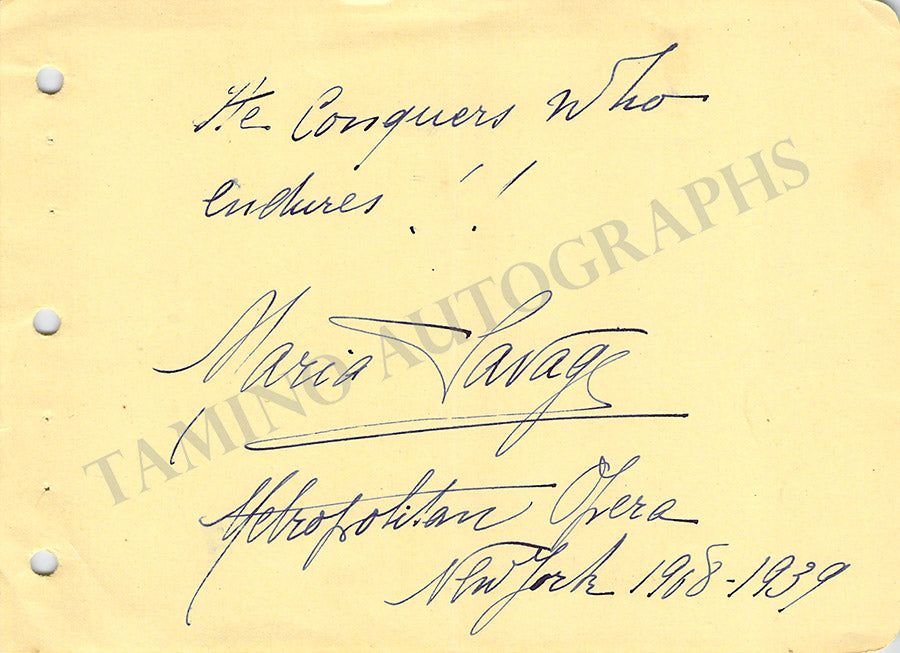 He Conquers Who
endures !!
Maria Savage
Metropolitan Opera
New York 1908-1939
TAMINO AUTOGRAPHS